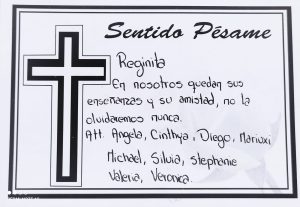 Sentido Pésame
Reginita
En nosotros quedan sus
enseñanzas y su amistad, no la
olvidaremos nunca.
Att. Angela, Cinthya, Diego, Mariuxi
Michael, Silvia, Stephanie
Valeria, Veronica.